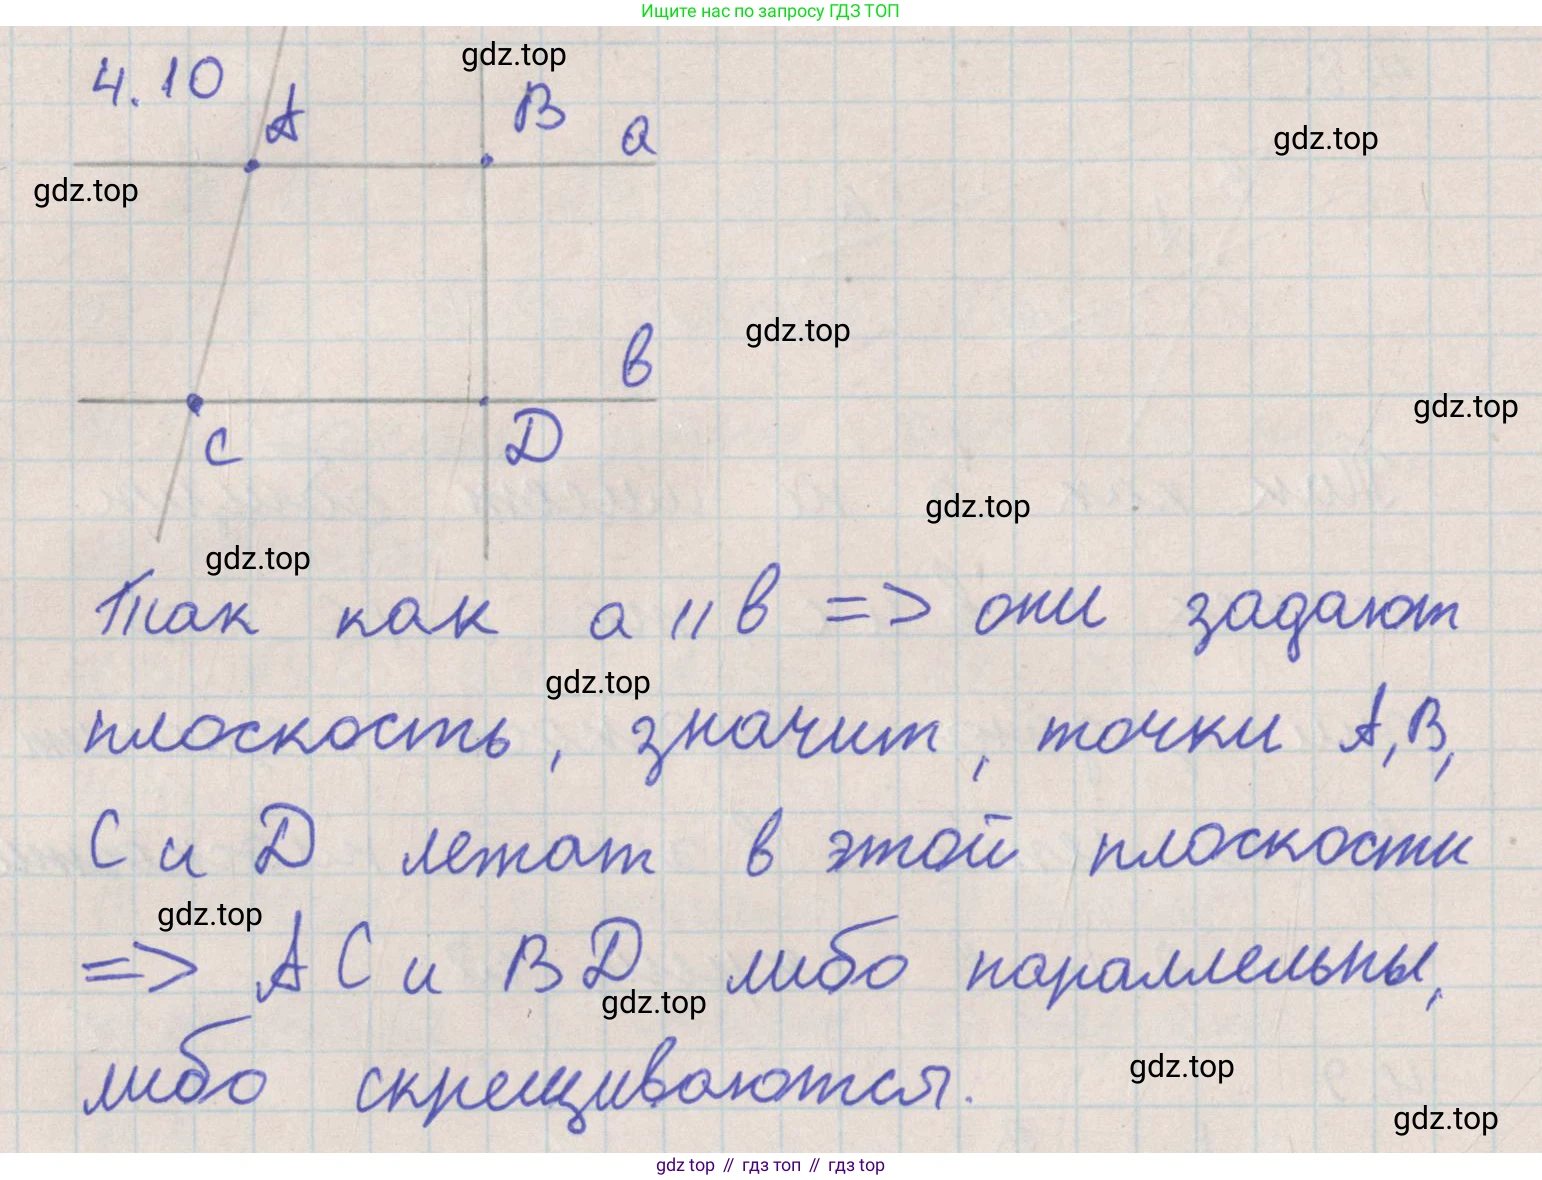 Ищите нас по запросу ГДЗ ТОП
gdz.top
4.10
A
B
a
gdz.top
gdz.top
gdz.top
в
gdz.top
C
D
gdz.top
gdz.top
Так как a || в => они задают
gdz.top
плоскость, значит, точки A, B,
C и D лежат в этой плоскости
gdz.top
=> AC и BD либо параллельны,
gdz.top
либо скрещиваются.
gdz.top
gdz.top
gdz top // гдз топ // gdz top